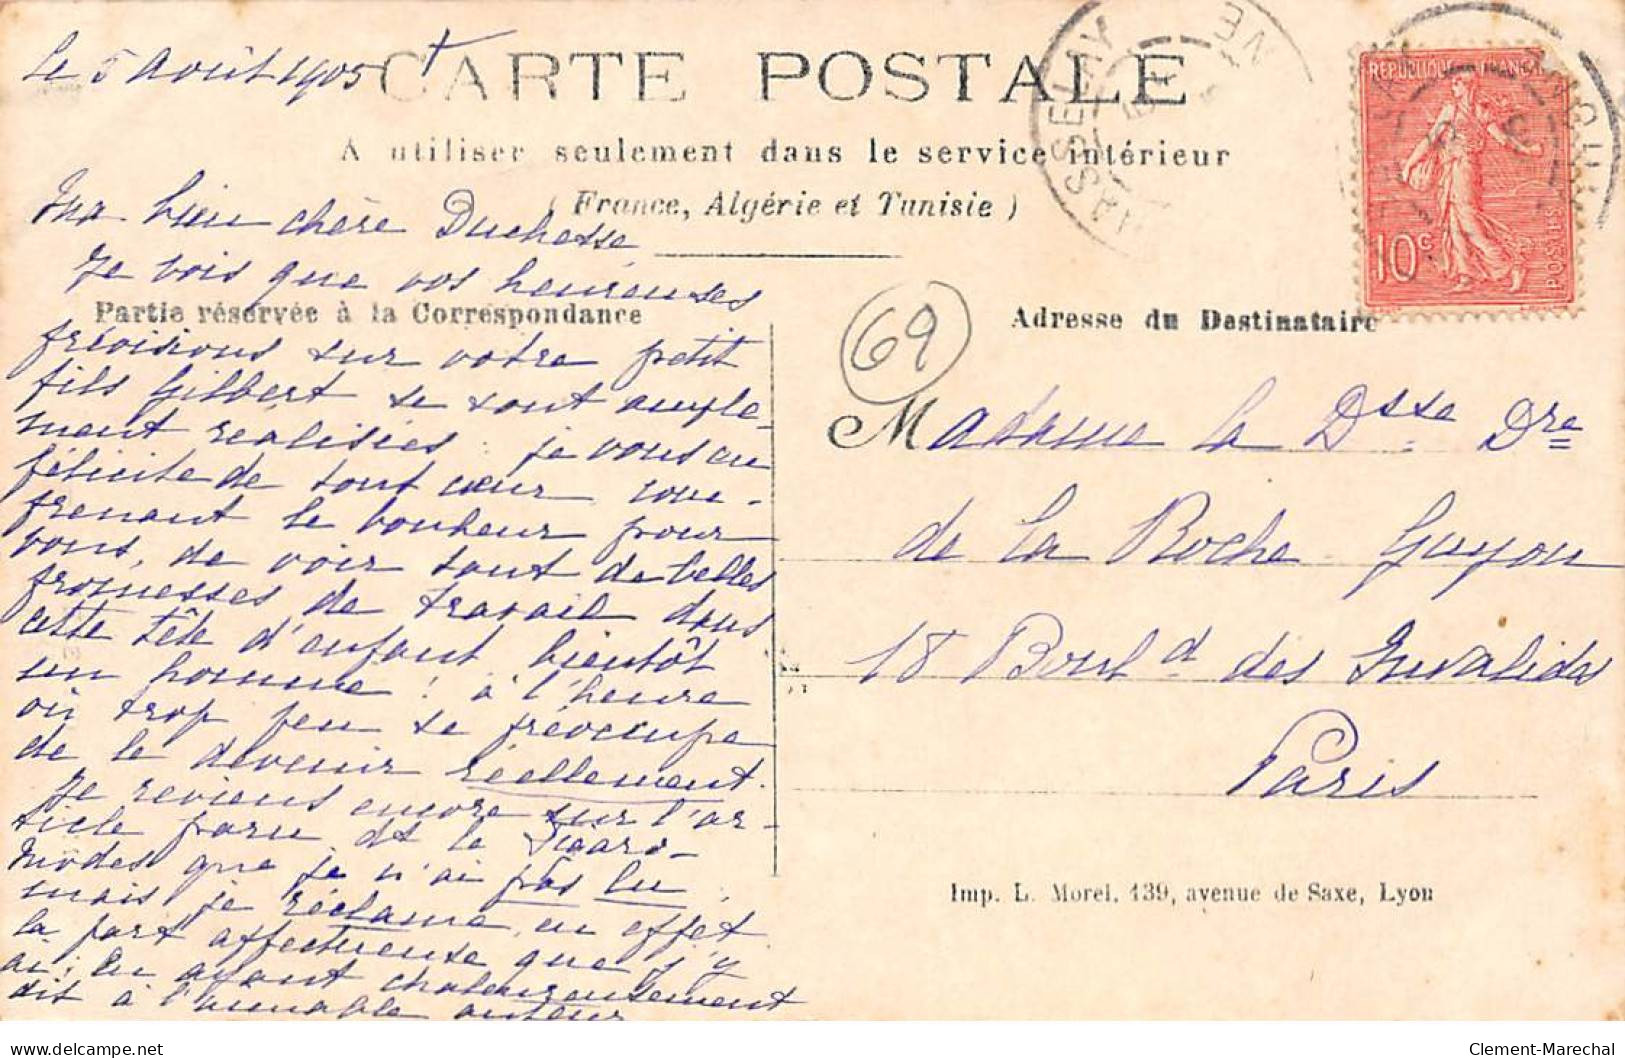 Le 5 Août 1905
CARTE POSTALE
A utiliser seulement dans le service intérieur
(France, Algérie et Tunisie)
Ma bien chère Duchesse,
Je vois que vos heureuses
Partie réservée à la Correspondance
prévisions sur votre petit
fils Gilbert se sont ample-
ment réalisées : je vous en
félicite de tout cœur com-
prenant le bonheur pour
vous, de voir tant de belles
promesses de travail dans
cette tête d'enfant, bientôt
un homme ! à l'heure
où trop peu se préoccupe
de le devenir réellement.
Je reviens encore sur l'ar-
ticle paru ds le Figaro-
Modes que je n'ai pas lu,
mais je réclame en effet
la part affectueuse que j'y
ai, en ayant chaleureusement
dit à l'aimable auteur
69
Adresse du Destinataire
Madame la Dsse Dre
de La Roche Guyon
18 Boul d des Invalides
Paris
REPUBLIQUE FRANÇAISE
10c
POSTES
Imp. L. Morel, 139, avenue de Saxe, Lyon
delcampe.net
Clement-Marechal